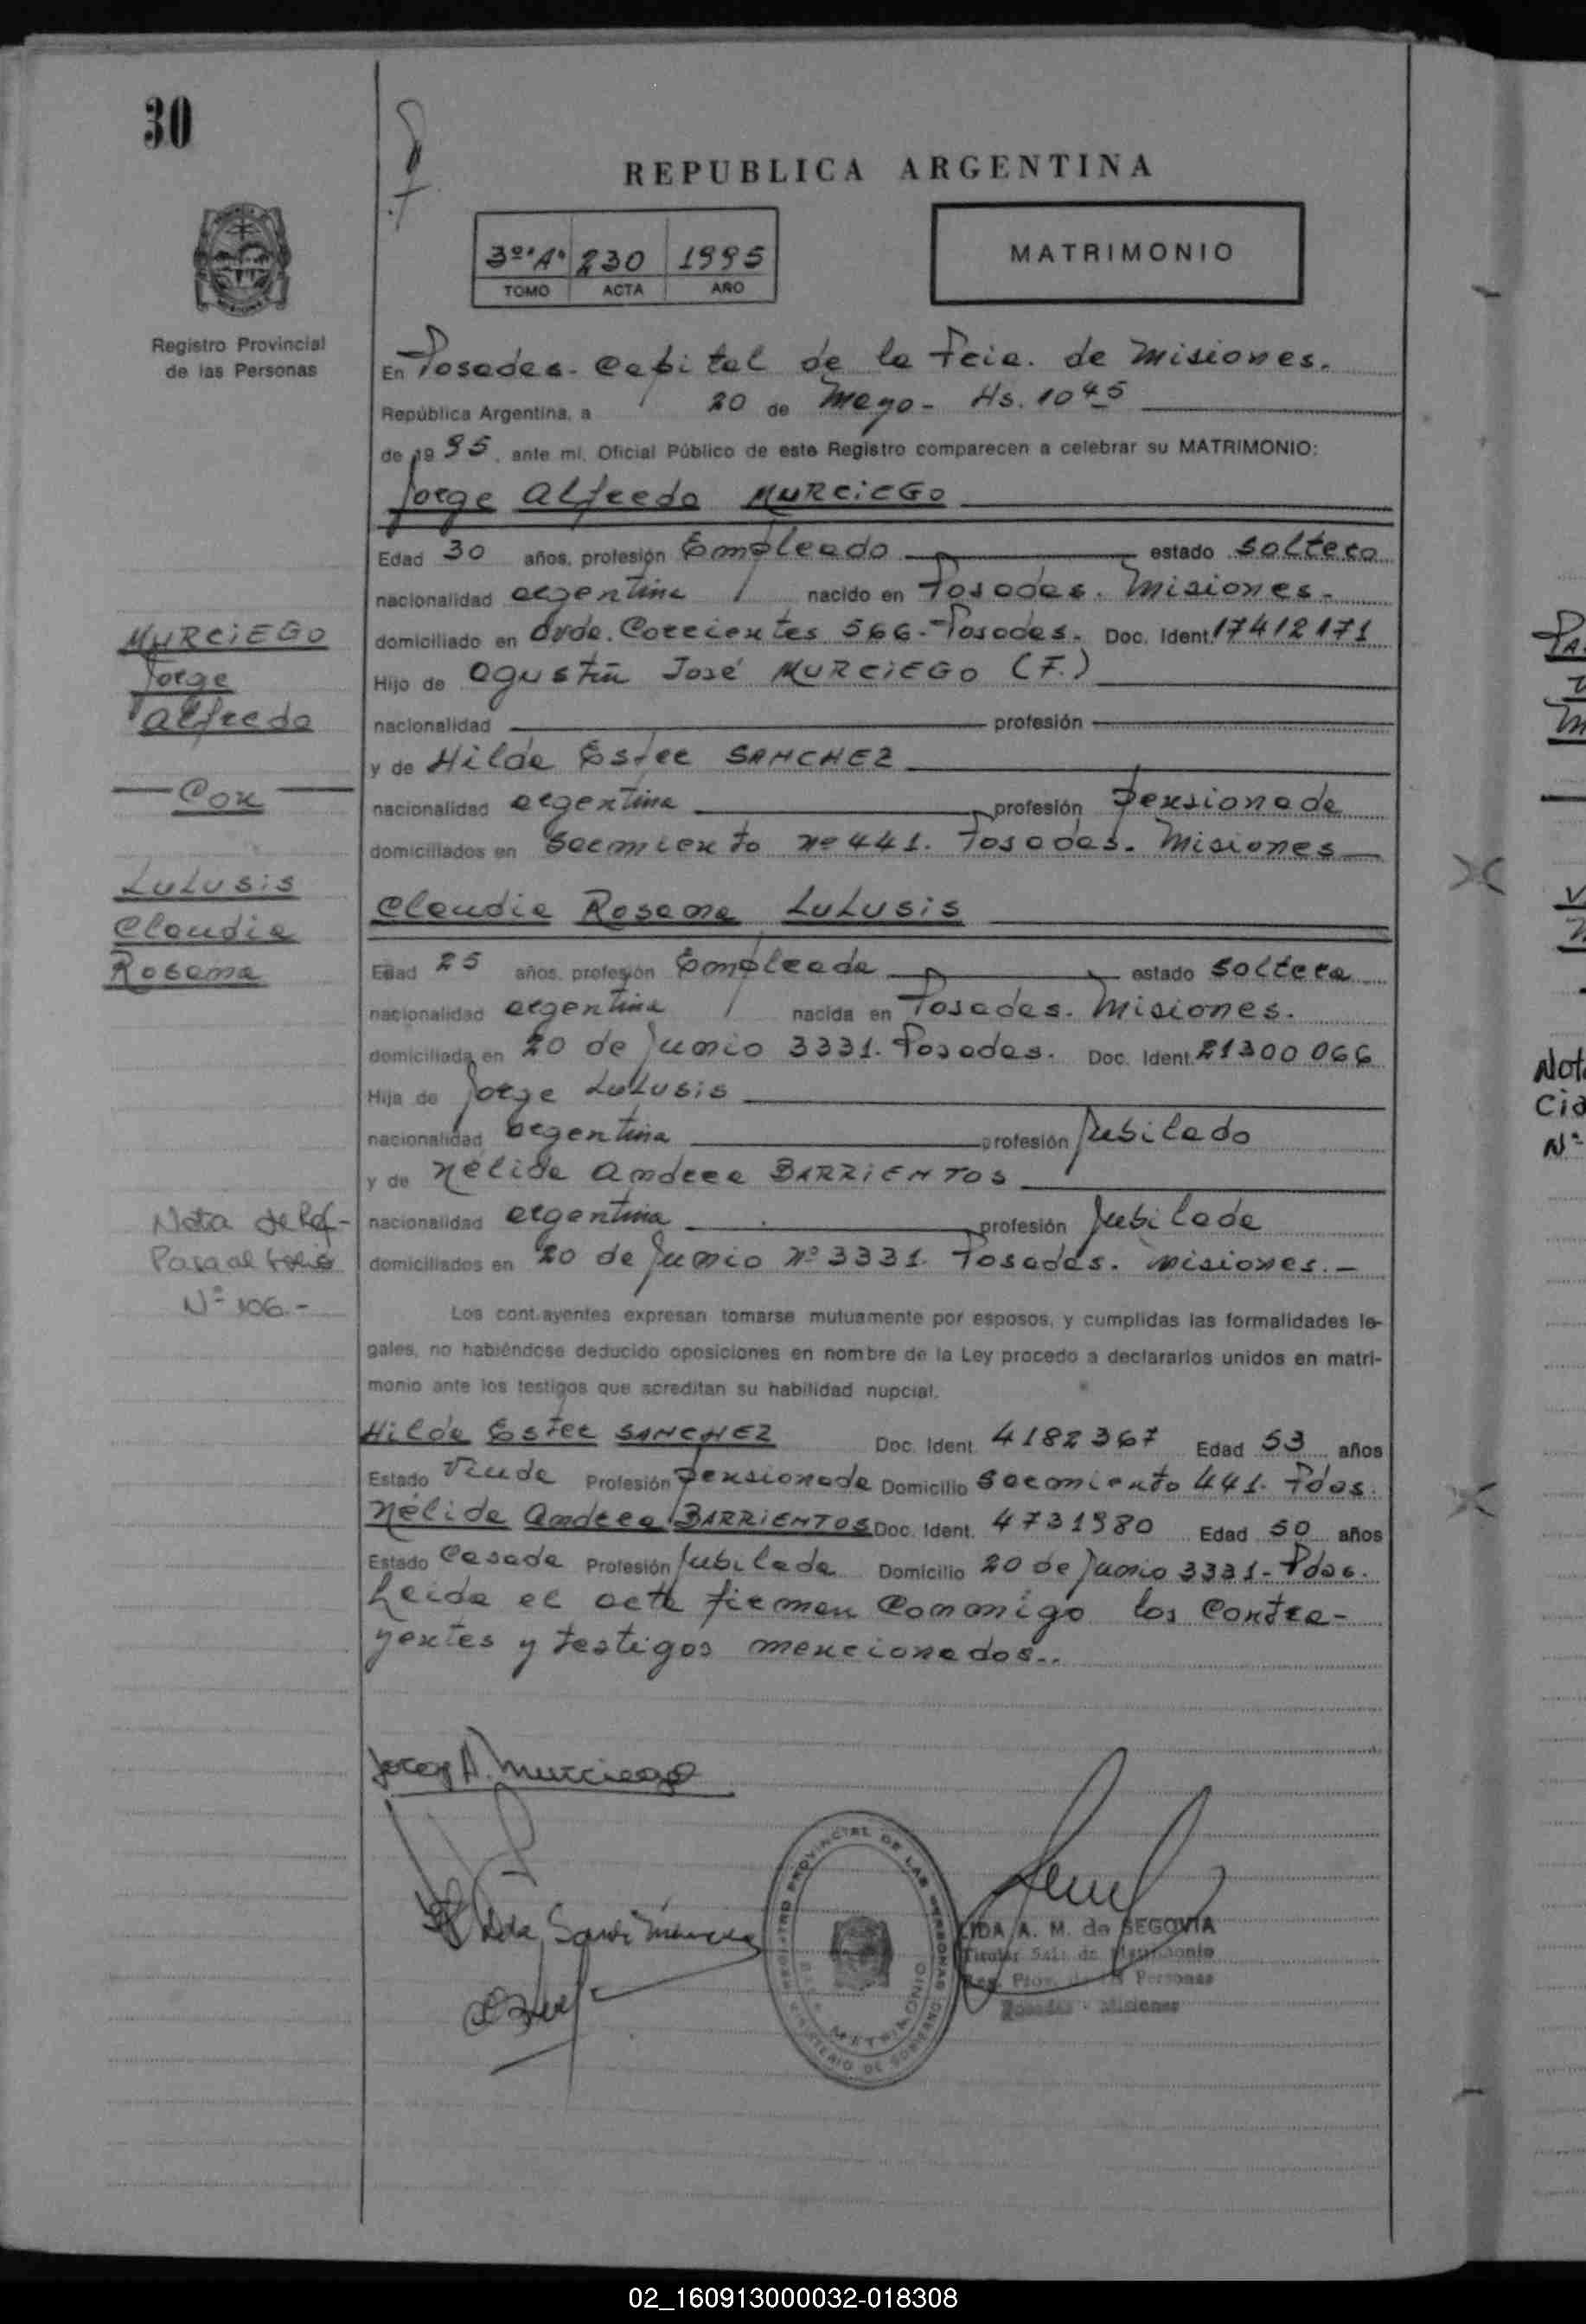 30
REPUBLICA ARGENTINA
3º "A" 230 1995
TOMO ACTA AÑO
MATRIMONIO
Registro Provincial
de las Personas
En Posadas. Capital de la Pcia. de Misiones.
República Argentina, a 20 de Mayo - Hs. 10 45
de 1995, ante mí, Oficial Público de este Registro comparecen a celebrar su MATRIMONIO:
Jorge Alfredo MURCIEGO
Edad 30 años, profesión Empleado estado soltero
nacionalidad argentina nacido en Posadas. Misiones.
domiciliado en Avda. Corrientes 566. Posadas. Doc. Ident. 17412171
Hijo de Agustín José MURCIEGO (F.)
nacionalidad profesión
y de Hilda Ester SANCHEZ
nacionalidad argentina profesión Pensionada
domiciliados en Sarmiento nº 441. Posadas. Misiones
MURCIEGO
Jorge
Alfredo
Con
LULUSIS
Claudia
Rosana
Claudia Rosana LULUSIS
Edad 25 años, profesión Empleada estado soltera
nacionalidad argentina nacida en Posadas. Misiones.
domiciliada en 20 de Junio 3331. Posadas. Doc. Ident. 21300066
Hija de Jorge LULUSIS
nacionalidad argentina profesión Jubilado
y de Nélida Andrea BARRIENTOS
nacionalidad argentina profesión Jubilada
domiciliados en 20 de Junio nº 3331. Posadas. Misiones.-
Nota de Ref-
Pasa al folio
Nº 106.-
Los contrayentes expresan tomarse mutuamente por esposos, y cumplidas las formalidades le-
gales, no habiéndose deducido oposiciones en nombre de la Ley procedo a declararlos unidos en matri-
monio ante los testigos que acreditan su habilidad nupcial.
Hilda Ester SANCHEZ Doc. Ident. 4182367 Edad 53 años
Estado Viuda Profesión Pensionada Domicilio Sarmiento 441. Pdas.
Nélida Andrea BARRIENTOS Doc. Ident. 4731980 Edad 50 años
Estado Casada Profesión Jubilada Domicilio 20 de Junio 3331- Pdas.
Leída el acta firman conmigo los contra-
yentes y testigos mencionados..
Jorge A. Murciego
REGISTRO PROVINCIAL DE LAS PERSONAS
MINISTERIO DE GOBIERNO
MATRIMONIO
LIDA A. M. de SEGOVIA
Titular Sec. de Matrimonio
Reg. Prov. de las Personas
Posadas - Misiones
Not
Cia
Nº
02_160913000032-018308